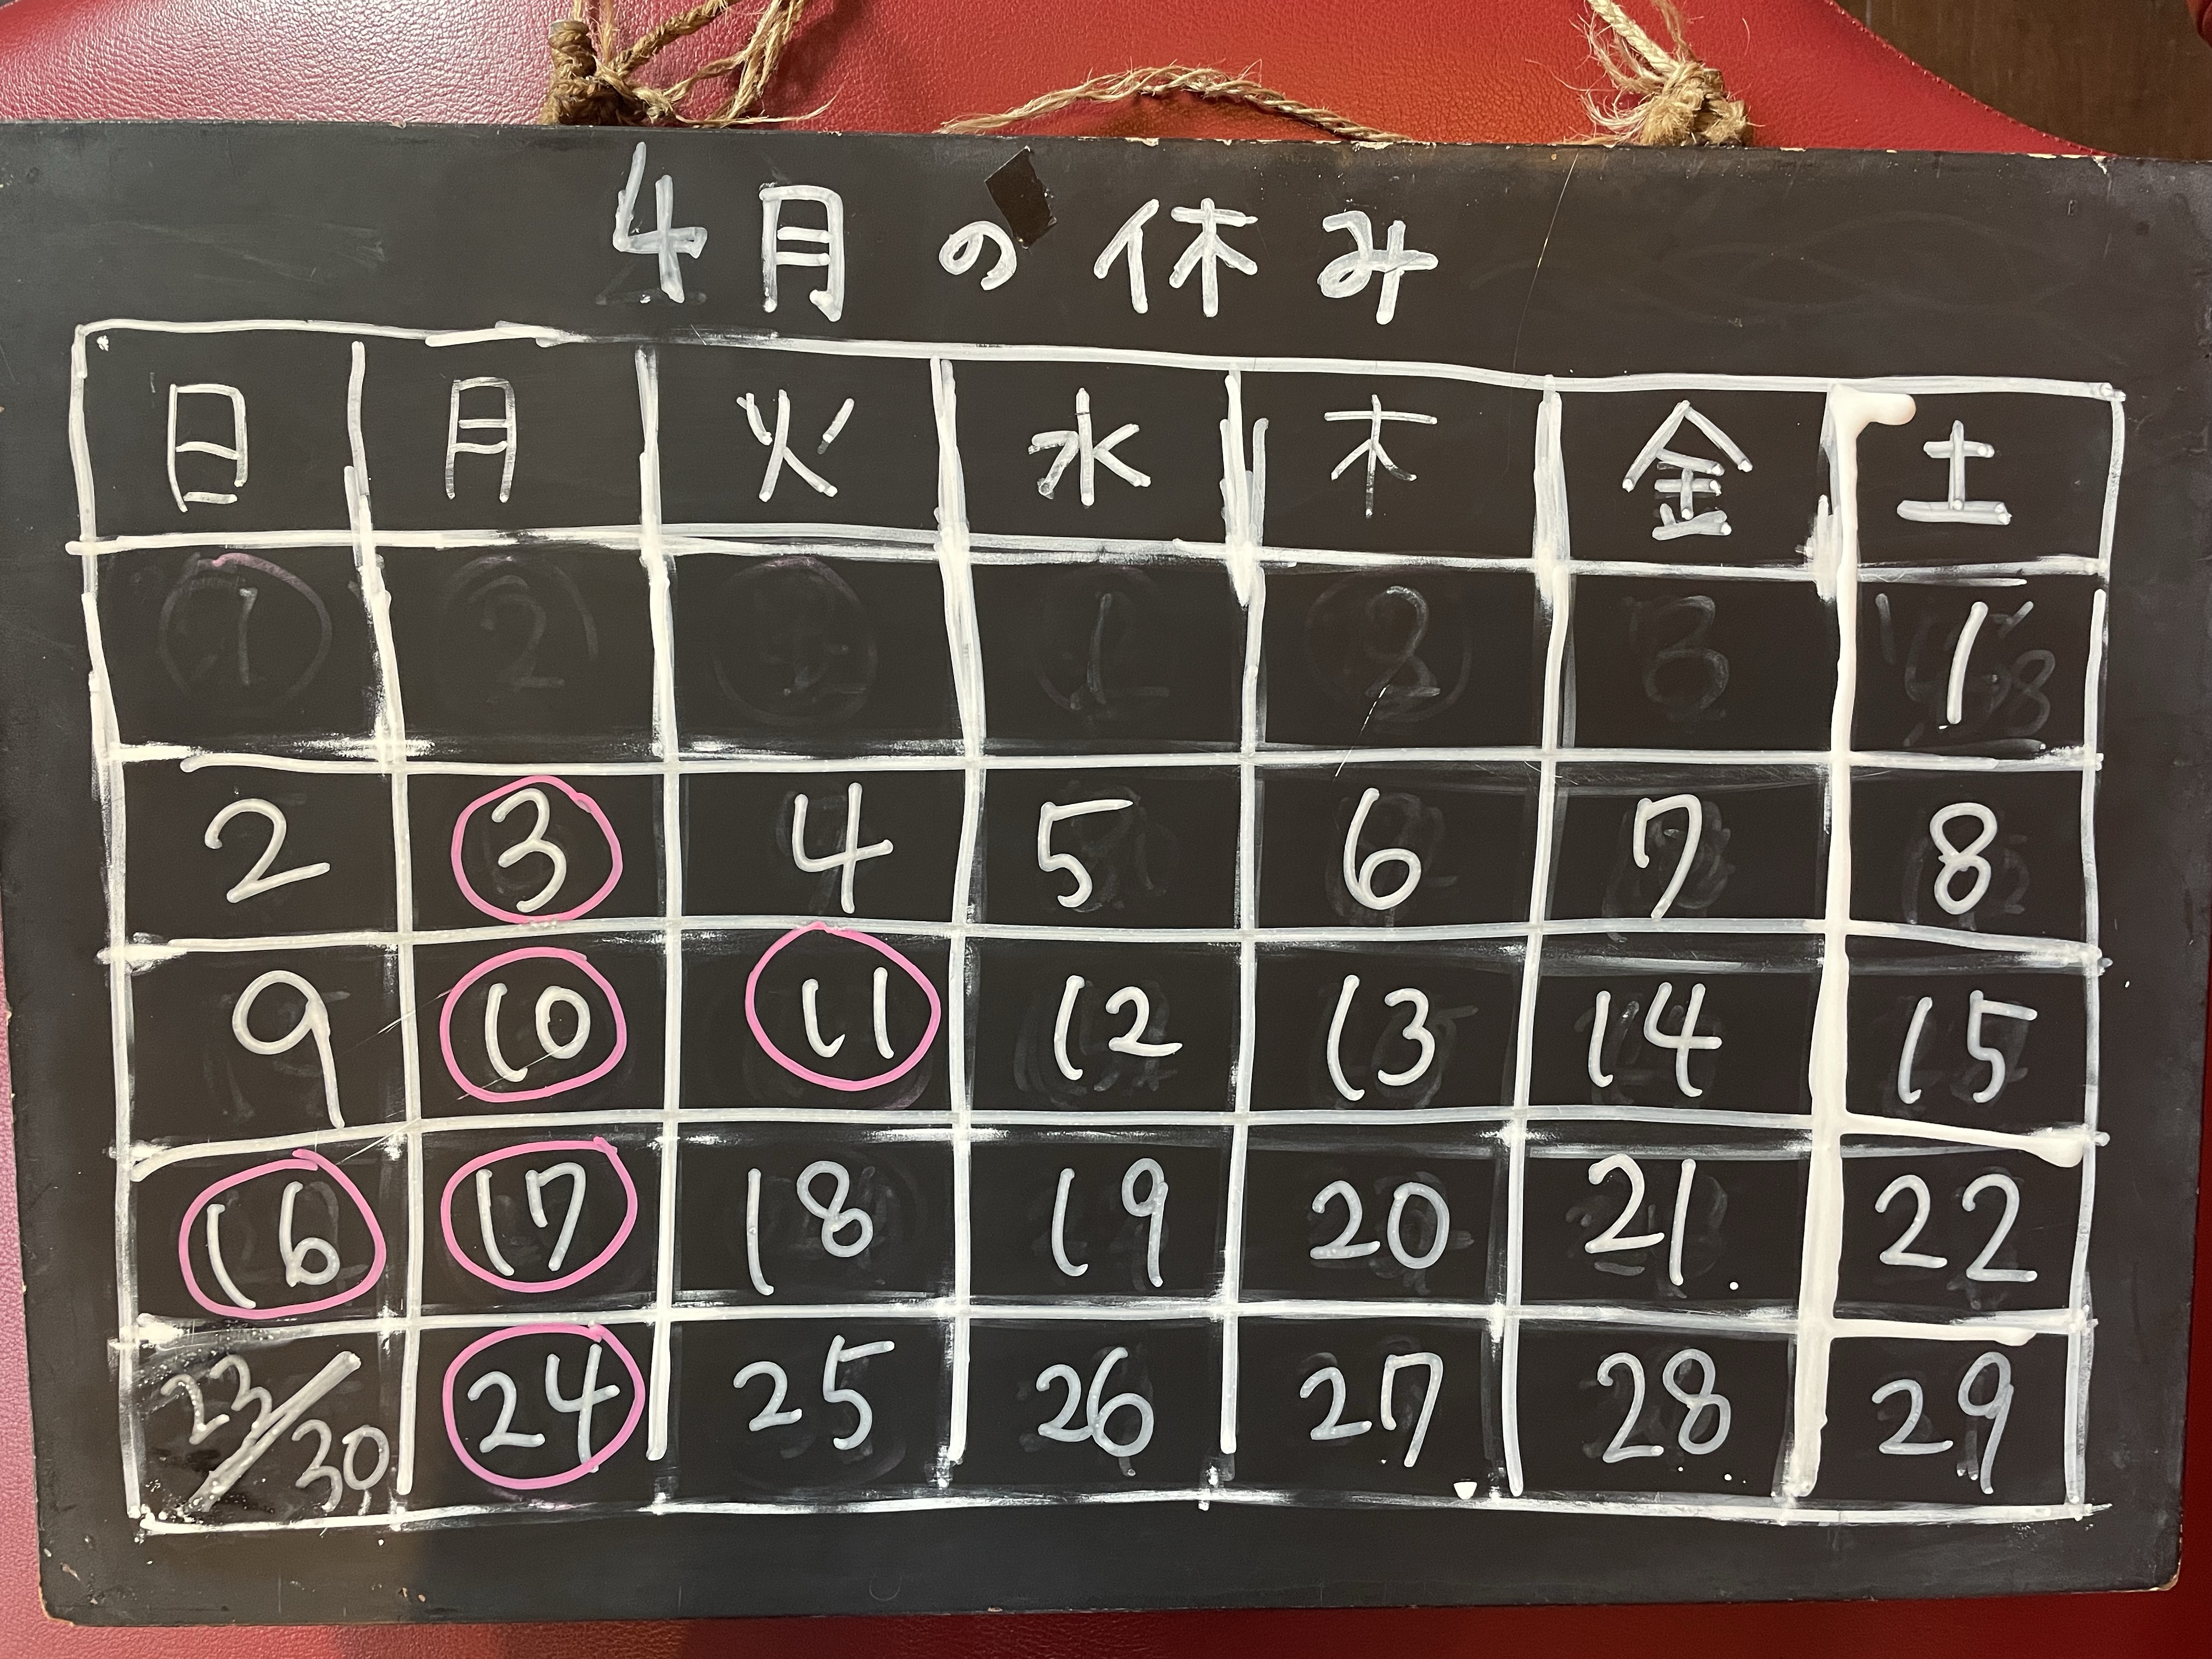 4月の休み
日 月 火 水 木 金 土
1
2 3 4 5 6 7 8
9 10 11 12 13 14 15
16 17 18 19 20 21 22
23/30 24 25 26 27 28 29